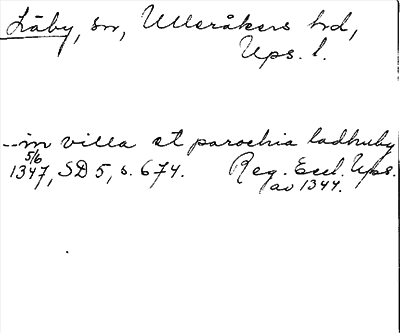 Låby, sn, Ulleråkers hd,
Ups. l.
--in villa et parochia ladhuby
5/6
1347, SD 5, s. 674. Reg. Eccl. Ups.
av 1344.